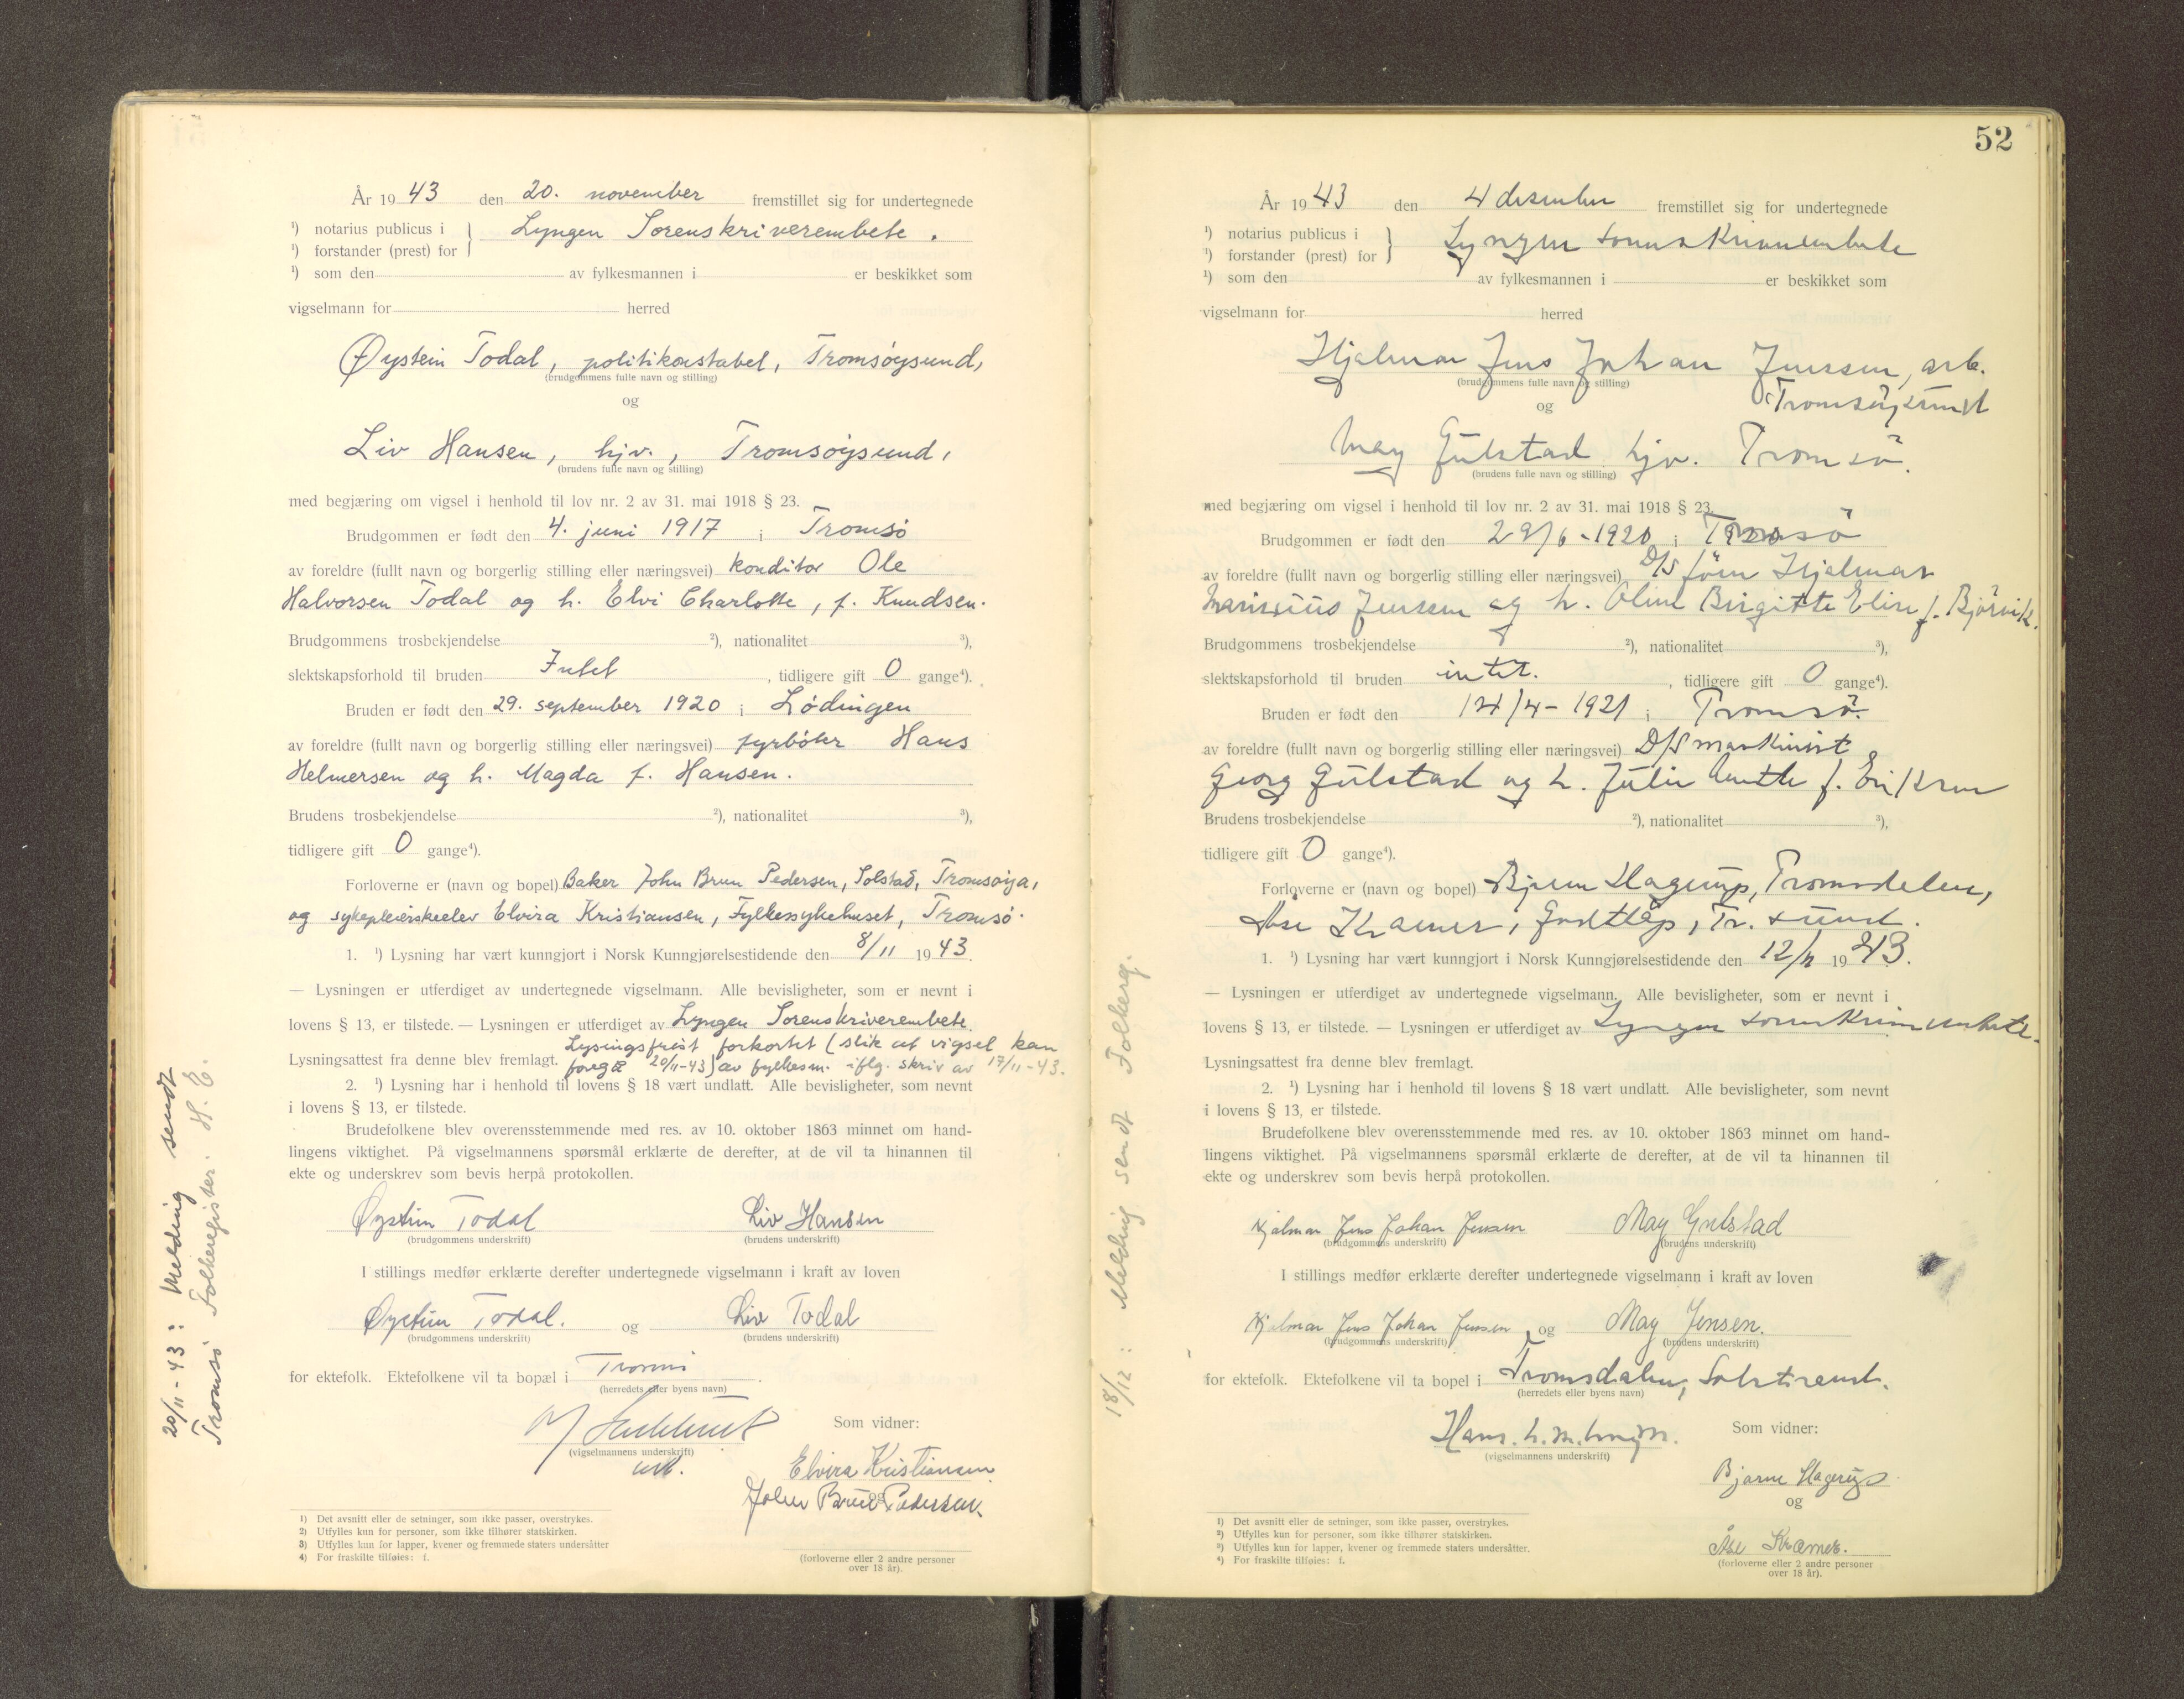 År 19 43 den 20. november fremstillet sig for undertegnede
¹) notarius publicus i } Lyngen Sorenskriverembete.
¹) forstander (prest) for
¹) som den av fylkesmannen i er beskikket som
vigselmann for herred
Øystein Todal, politikonstabel, Tromsøysund,
(brudgommens fulle navn og stilling)
og
Liv Hansen, hjv., Tromsøysund,
(brudens fulle navn og stilling)
med begjæring om vigsel i henhold til lov nr. 2 av 31. mai 1918 § 23.
Brudgommen er født den 4. juni 1917 i Tromsø
av foreldre (fullt navn og borgerlig stilling eller næringsvei) konditor Ole
Halvorsen Todal og h. Elvi Charlotte, f. Knudsen.
Brudgommens trosbekjendelse ²), nationalitet ³),
slektskapsforhold til bruden Intet, tidligere gift 0 gange⁴).
Bruden er født den 29. september 1920 i Lødingen
av foreldre (fullt navn og borgerlig stilling eller næringsvei) fyrbøter Hans
Helmersen og h. Magda f. Hansen.
Brudens trosbekjendelse ²), nationalitet ³),
tidligere gift 0 gange⁴).
Forloverne er (navn og bopel) Baker John Brun Pedersen, Solstad, Tromsøya,
og sykepleierskeelev Elvira Kristiansen, Fylkessykehuset, Tromsø.
1. ¹) Lysning har vært kunngjort i Norsk Kunngjørelsestidende den 8/11 1943.
— Lysningen er utferdiget av undertegnede vigselmann. Alle bevisligheter, som er nevnt i
lovens § 13, er tilstede. — Lysningen er utferdiget av Lyngen Sorenskriverembete.
Lysingsfrist forkortet (slik at vigsel kan
Lysningsattest fra denne blev fremlagt. foregå 20/11-43) av fylkesm. iflg. skriv av 17/11-43.
2. ¹) Lysning har i henhold til lovens § 18 vært undlatt. Alle bevisligheter, som nevnt
i lovens § 13, er tilstede.
Brudefolkene blev overensstemmende med res. av 10. oktober 1863 minnet om hand-
lingens viktighet. På vigselmannens spørsmål erklærte de derefter, at de vil ta hinannen til
ekte og underskrev som bevis herpå protokollen.
Øystein Todal Liv Hansen
(brudgommens underskrift) (brudens underskrift)
I stillings medfør erklærte derefter undertegnede vigselmann i kraft av loven
Øystein Todal. og Liv Todal
(brudgommens underskrift) (brudens underskrift)
for ektefolk. Ektefolkene vil ta bopæl i Tromsø.
(herredets eller byens navn)
Som vidner:
(vigselmannens underskrift)
Elvira Kristiansen
og
John Brun Pedersen.
1) Det avsnitt eller de setninger, som ikke passer, overstrykes.
2) Utfylles kun for personer, som ikke tilhører statskirken.
3) Utfylles kun for lapper, kvener og fremmede staters undersåtter
4) For fraskilte tilføies: f.
(forloverne eller 2 andre personer
over 18 år).
20/11-43: Melding sendt
Tromsø Folkeregister. H. E.
52
År 19 43 den 4 desember fremstillet sig for undertegnede
¹) notarius publicus i } Lyngen sorenskriverembete
¹) forstander (prest) for
¹) som den av fylkesmannen i er beskikket som
vigselmann for herred
Hjalmar Jens Johan Jenssen, arb.
Tromsøysund
(brudgommens fulle navn og stilling)
og
May Gulstad hjv. Tromsø.
(brudens fulle navn og stilling)
med begjæring om vigsel i henhold til lov nr. 2 av 31. mai 1918 § 23.
Brudgommen er født den 29/6-1920 i Tromsø
av foreldre (fullt navn og borgerlig stilling eller næringsvei) D/S fører Hjalmar
Marinius Jenssen og h. Oline Birgitte Elise f. Bjørvik.
Brudgommens trosbekjendelse ²), nationalitet ³),
slektskapsforhold til bruden intet., tidligere gift 0 gange⁴).
Bruden er født den 14/4-1921 i Tromsø.
av foreldre (fullt navn og borgerlig stilling eller næringsvei) D/S maskinist
Georg Gulstad og h. Julie f. Eriksen
Brudens trosbekjendelse ²), nationalitet ³),
tidligere gift 0 gange⁴).
Forloverne er (navn og bopel) Bjarne Hagerup, Tromsdalen,
Åse Kræmer, Tr. sund.
1. ¹) Lysning har vært kunngjort i Norsk Kunngjørelsestidende den 12/11 1943.
— Lysningen er utferdiget av undertegnede vigselmann. Alle bevisligheter, som er nevnt i
lovens § 13, er tilstede. — Lysningen er utferdiget av Lyngen sorenskriverembete.
Lysningsattest fra denne blev fremlagt.
2. ¹) Lysning har i henhold til lovens § 18 vært undlatt. Alle bevisligheter, som nevnt
i lovens § 13, er tilstede.
Brudefolkene blev overensstemmende med res. av 10. oktober 1863 minnet om hand-
lingens viktighet. På vigselmannens spørsmål erklærte de derefter, at de vil ta hinannen til
ekte og underskrev som bevis herpå protokollen.
Hjalmar Jens Johan Jensen May Gulstad
(brudgommens underskrift) (brudens underskrift)
I stillings medfør erklærte derefter undertegnede vigselmann i kraft av loven
Hjalmar Jens Johan Jensen og May Jensen.
(brudgommens underskrift) (brudens underskrift)
for ektefolk. Ektefolkene vil ta bopel i Tromsdalen,
(herredets eller byens navn)
Hans. Som vidner:
(vigselmannens underskrift)
Bjarne Hagerup
og
Åse Kræmer.
¹) Det avsnitt eller de setninger, som ikke passer, overstrykes.
²) Utfylles kun for personer, som ikke tilhører statskirken.
³) Utfylles kun for lapper, kvener og fremmede staters undersåtter.
⁴) For fraskilte tilføies: f.
(forloverne eller 2 andre personer
over 18 år).
18/12: Melding sendt Folkereg.